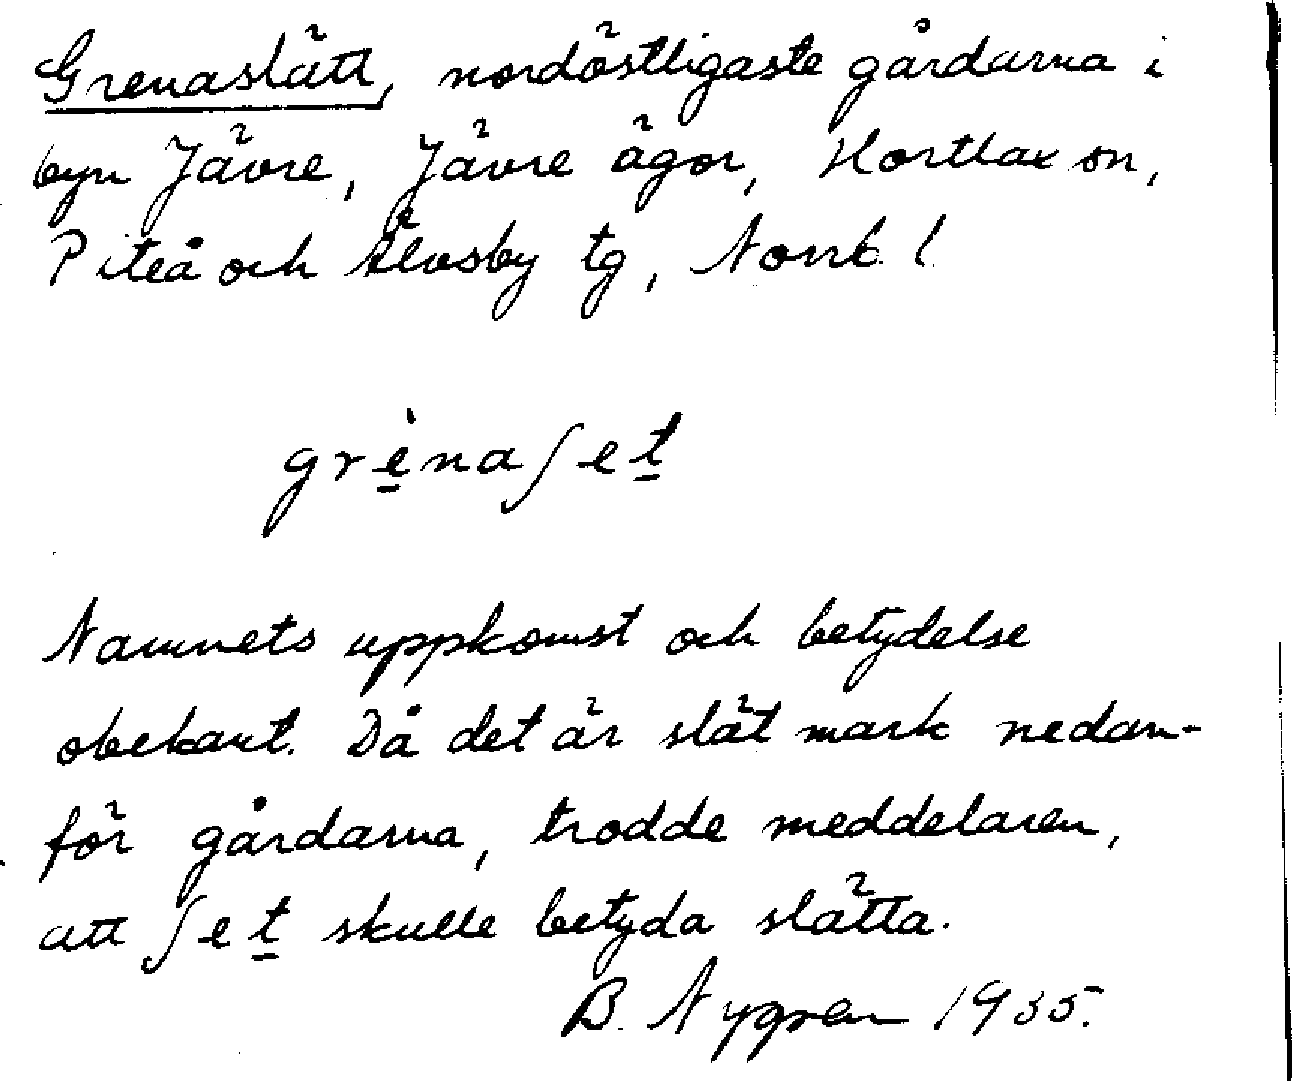 Grenaslätt, nordöstligaste gårdarna i
byn Jävre, Jävre ägor, Hortlax sn,
Piteå och Älvsby tg, Norrb. l.
grèna∫et
Namnets uppkomst och betydelse
obekant. Då det är slät mark nedan-
för gårdarna, trodde meddelaren,
att ∫et skulle betyda slätta.
B. Nygren 1935.